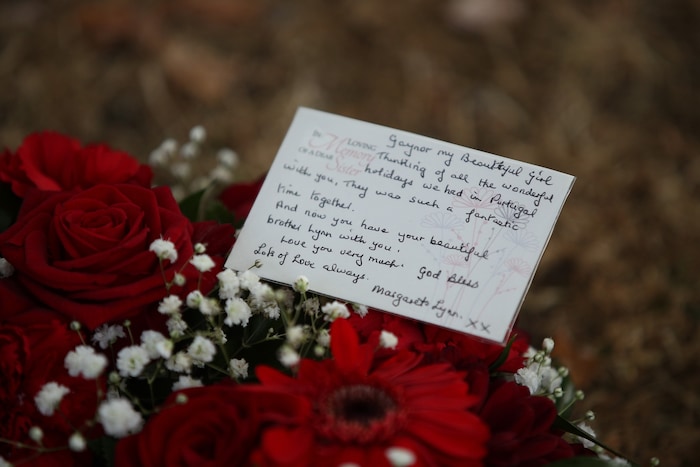 In Loving
Memory
of a Dear
Sister
Gaynor my Beautiful Girl
Thinking of all the wonderful
holidays we had in Portugal
with you. They was such a fantastic
time together.
And now you have your beautiful
brother Lynn with you.
Love you very much. God Bless
Lots of Love always.
Margaret & Lynn. xx